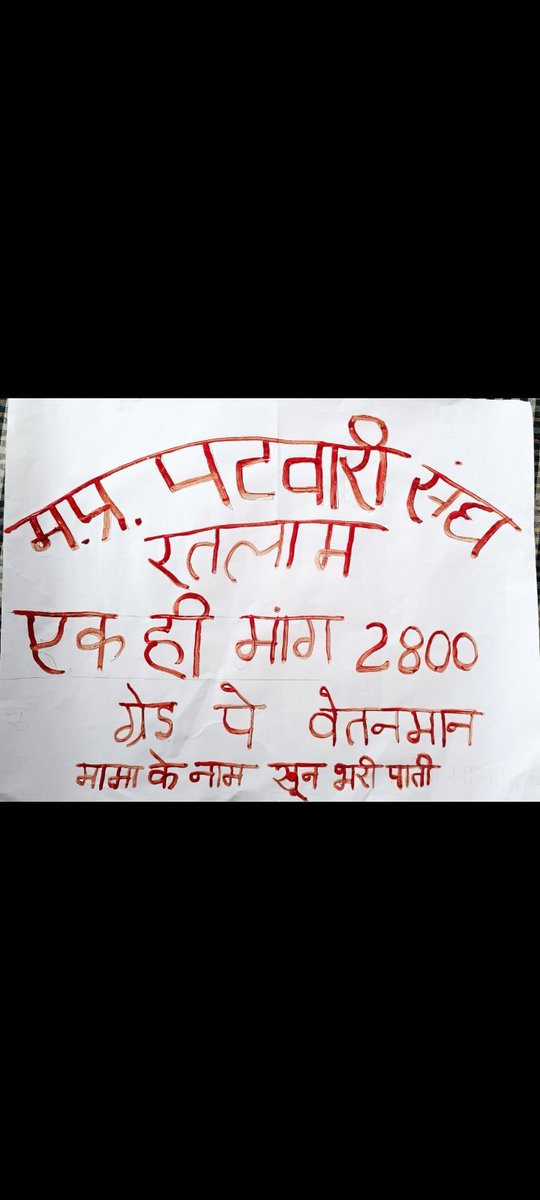 म.प्र. पटवारी संघ
रतलाम
एक ही मांग 2800
ग्रेड पे वेतनमान
मामा के नाम खून भरी पाती